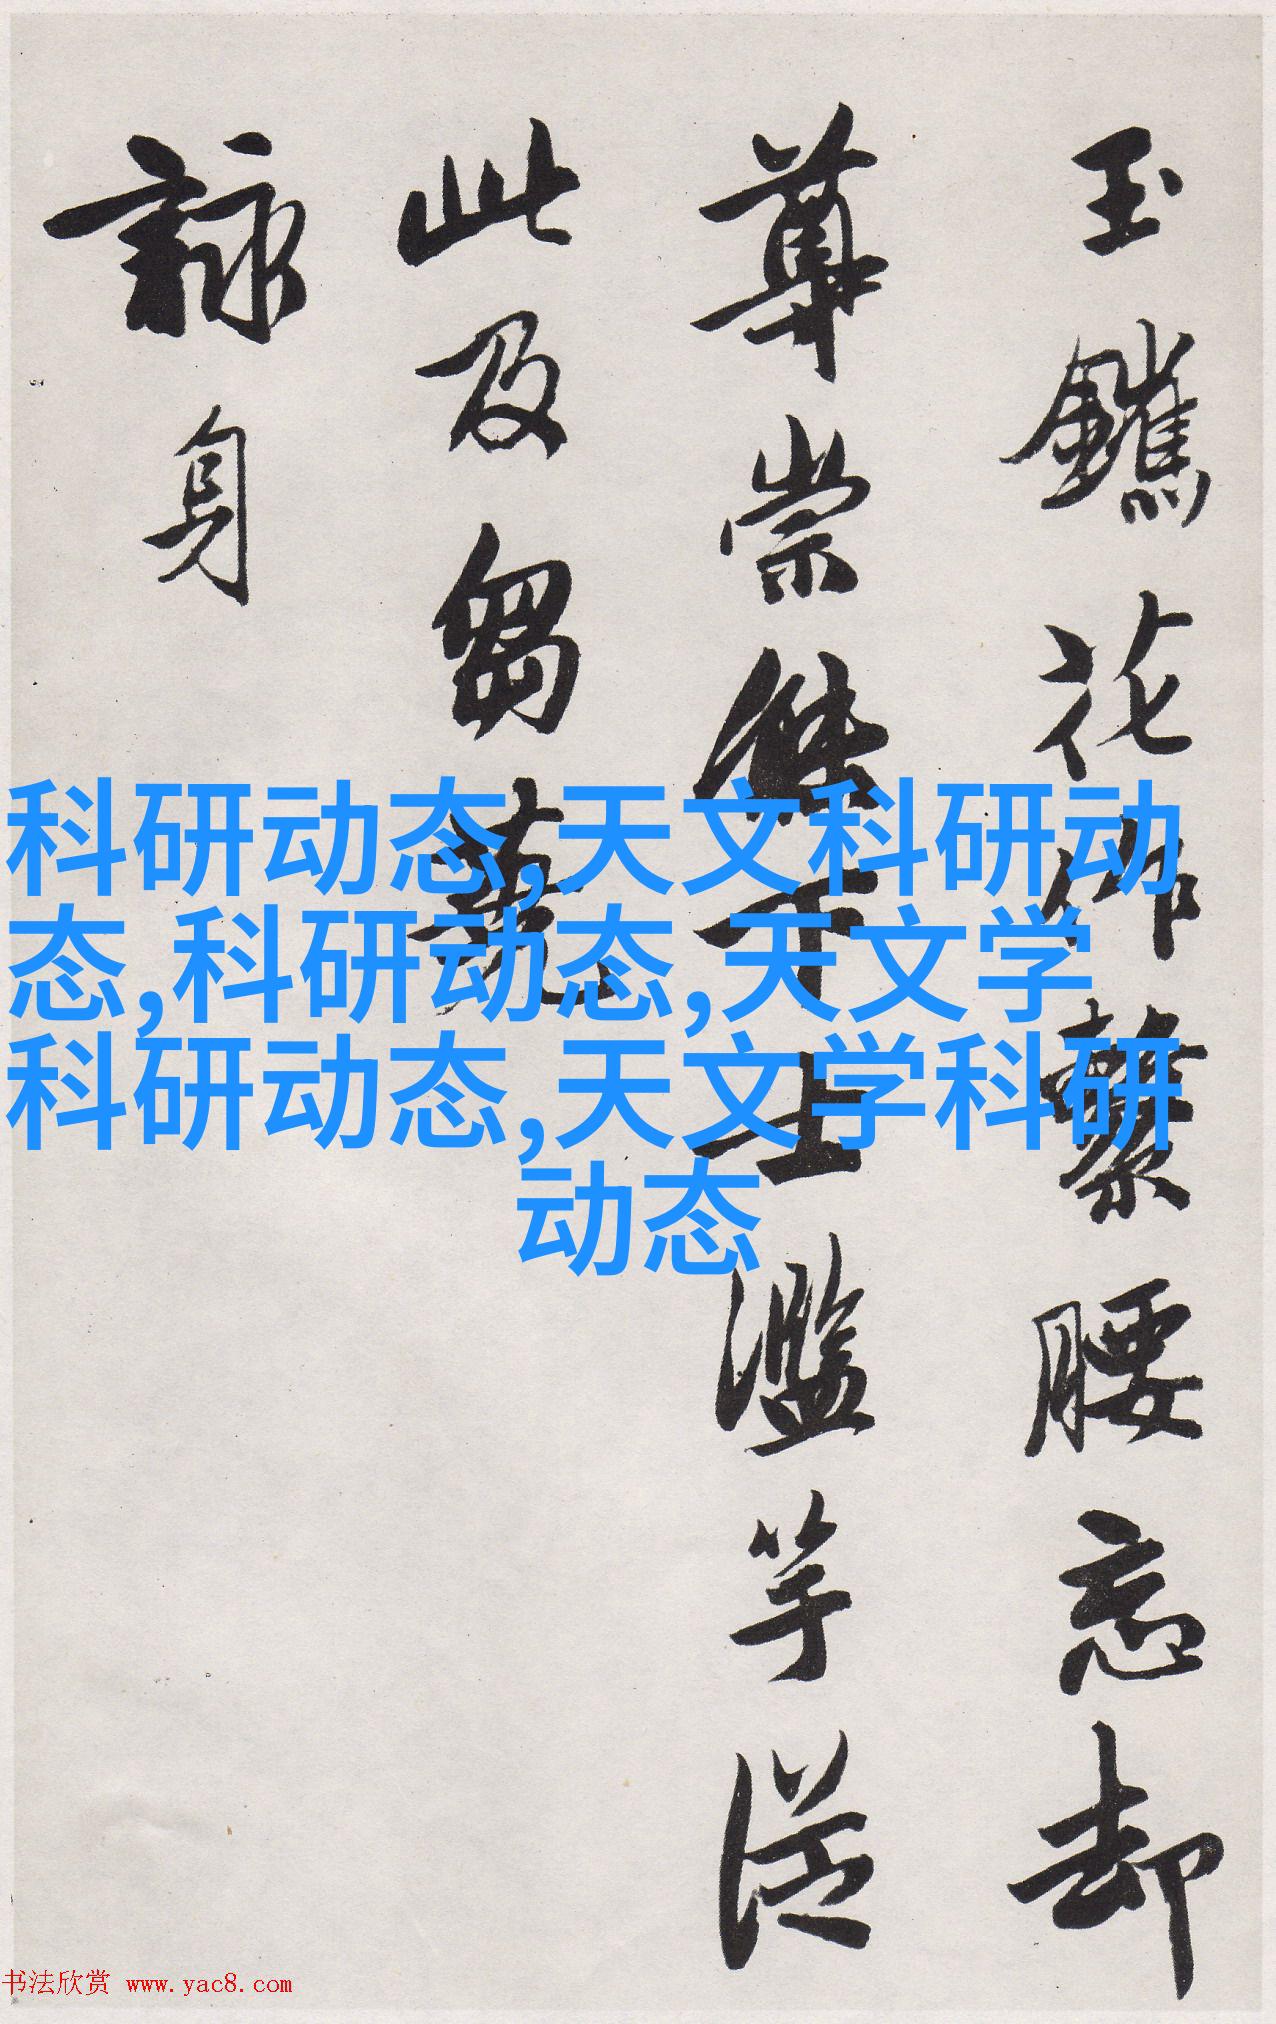 玉鑣花作繫腰忘却
尊崇傑下士濫竽從
此及芻蕘
詠身
科研动态,天文科研动
态,科研动态,天文学
科研动态,天文学科研
动态
书法欣赏 www.yac8.com